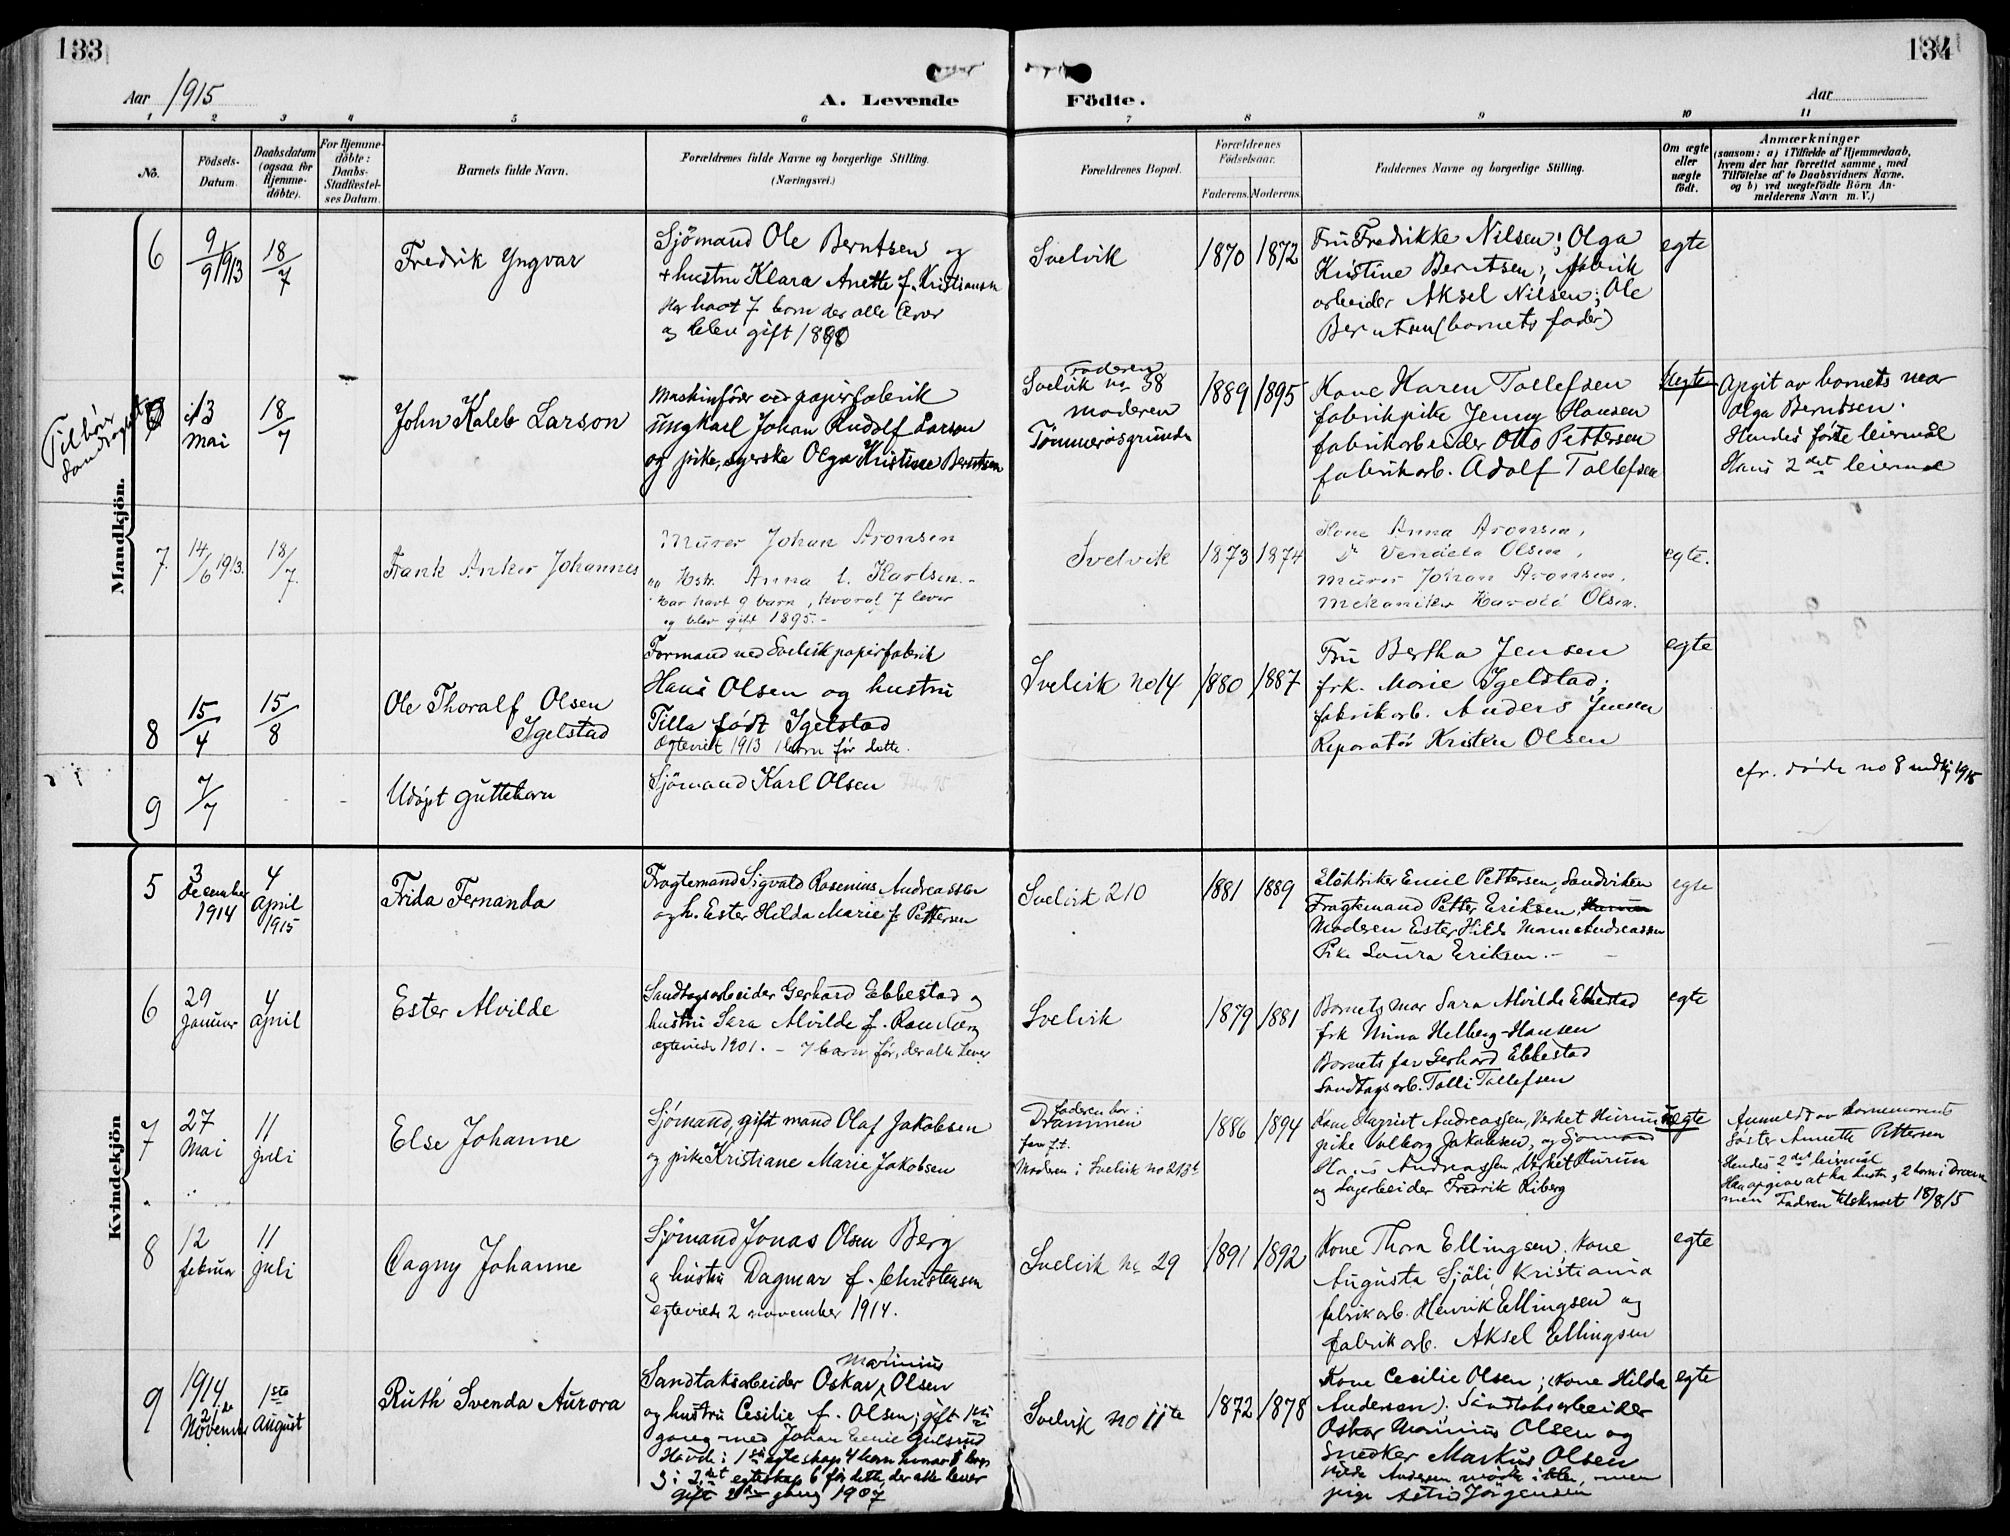 133
134
Aar 1915
A. Levende
Födte.
Aar
1 2 3 4 5 6 7 8 9 10 11
No.
Födsels-Datum.
Daabsdatum (ogsaa for Hjemmedöbte).
For Hjemmedöbte: Daabs-Stadfæstelses Datum.
Barnets fulde Navn.
Forældrenes fulde Navne og borgerlige Stilling.
(Næringsvei.)
Forældrenes Bopæl.
Forældrenes Födselsaar.
Faderens. Moderens.
Faddernes Navne og borgerlige Stilling.
Om ægte eller uægte födt.
Anmærkninger
(saasom: a) i Tilfælde af Hjemmedaab,
hvem der har forrettet samme, med
Tilföielse af to Daabsvidners Navne.
og b) ved uægtefödte Börn An-
melderens Navn m. V.)
Mandkjön.
6
9/9 1913
18/7
Fredrik Yngvar
Sjömand Ole Berntsen og
hustru Klara Anette f. Kristiansen
Har havt 7 born der alle lever
og blev gift 1890
Svelvik
1870 1872
Fru Fredrikke Nilsen; Olga
Kristine Berntsen; fabrik
arbeider Aksel Nilsen; Ole
Berntsen (barnets fader)
egte
Tilhör
13 mai
18/7
John Kaleb Larson
Maskinförer ved papirfabrik
Ungkarl Johan Rudolf Larson
og pike, syerske Olga Kristine Berntsen
Faderen
Svelvik no 38
moderen
Tømmeråsgrunden
1889 1895
Kone Karen Tollefsen
fabrikpike Jenny Hansen
fabrikarbeider Otto Pettersen
fabrikarb. Adolf Tollefsen
Uegte
Opgit av barnets mor
Olga Berntsen.
Hendes förte leiermål
Hans 2det leiermål
7.
14/6 1913.
18/7.
Frank Anker Johannes
Murer Johan Aronsen
og Hstr. Anna f. Karlsen.-
Har havt 9 barn, hvoraf 7 lever
og blev gift 1895.-
Svelvik
1873 1874
Kone Anna Aronsen,
Dr Vendela Olsen,
Murer Johan Aronsen,
Mekaniker Harald Olsen.
egte.
8
15/4
15/8
Ole Thoralf Olsen
Igelstad
Formand ved Svelvik papirfabrik
Hans Olsen og hustru
Tilla født Igelstad
Egteviet 1913 1 barn før dette.
Svelvik no 14
1880 1887
Fru Bertha Jensen
frk. Marie Igelstad;
fabrikarb. Anders Jensen
Reparatör Kristen Olsen
egte
9
7/7
Udöpt guttebarn
Sjömand Karl Olsen
cfr. döde no 8 mdkj 1915
Kvindekjön
5
3 december 1914
4 april 1915
Frida Fernanda
Fragtemand Sigvald Rosenius Andreassen
og h. Ester Hilda Marie f. Pettersen
Svelvik 210
1881 1889
Elektriker Emil Pettersen, Sandviken
Fragtemand Petter Eriksen,
Moderen Ester Hilda Marie Andreassen
Pike Laura Eriksen.-
egte
6
29 januar
4 april
Ester Alvilde
Sandtagsarbeider Gerhard Ebbestad og
hustru Sara Alvilde f. Ramberg
egteviede 1901. - 7 barn før, der alle lever
Svelvik
1879 1881
Barnets mor Sara Alvilde Ebbestad
frk Nina Helberg-Hansen
Barnets far Gerhard Ebbestad
Sandtagsarb. Tolli Tollefsen
egte
7
27 mai
11 juli
Else Johanne
Sjömand, gift mand Olaf Jakobsen
og pike Kristiane Marie Jakobsen
Faderen bor i
Drammen
Moderen i Svelvik no 213b
1886 1894
Kone Andreassen, Verket Hurum
pike Valborg Jakobsen, og Sjömand
Andreassen Verket Hurum
og Lagerbeider Fredrik Kiberg
Uegte
Anmeldt av barnemorens
söster Annette Pettersen
Hendes 2det leiermål
Han opgives at ha hustru, 2 barn i Dram-
men Fadren tilskrevet 18/8 15
8
12 februar
11 juli
Dagny Johanne
Sjömand Jonas Olsen Berg
og hustru Dagmar f. Christensen
egteviede 2 november 1914.
Svelvik no 29
1891 1892
Kone Thora Ellingsen, kone
Augusta Sjöli, Kristiania
fabrikarb. Henrik Ellingsen og
fabrikarb. Aksel Ellingsen
egte
9
1914 21de November
1ste August
Ruth Svenda Aurora
Marinius
Sandtaksarbeider Oskar Olsen
og hustru Cecilie f. Olsen; gift 1ste
gang med Johan Emil Gulsrud
Havde i 1ste egteskap 4 barn hvorav
3 i 2det egteskap 6 før dette, der alle lever
gift 2den gang 1907
Svelvik no 11te
1872 1878
Kone Cecilie Olsen; (kone Hilda
Andersen). Sandtaksarbeider
Oskar Marinius Olsen og
Snedker Markus Olsen
Hilda Andersen mötte ikke, men
pige Astrid Jörgensen
egte